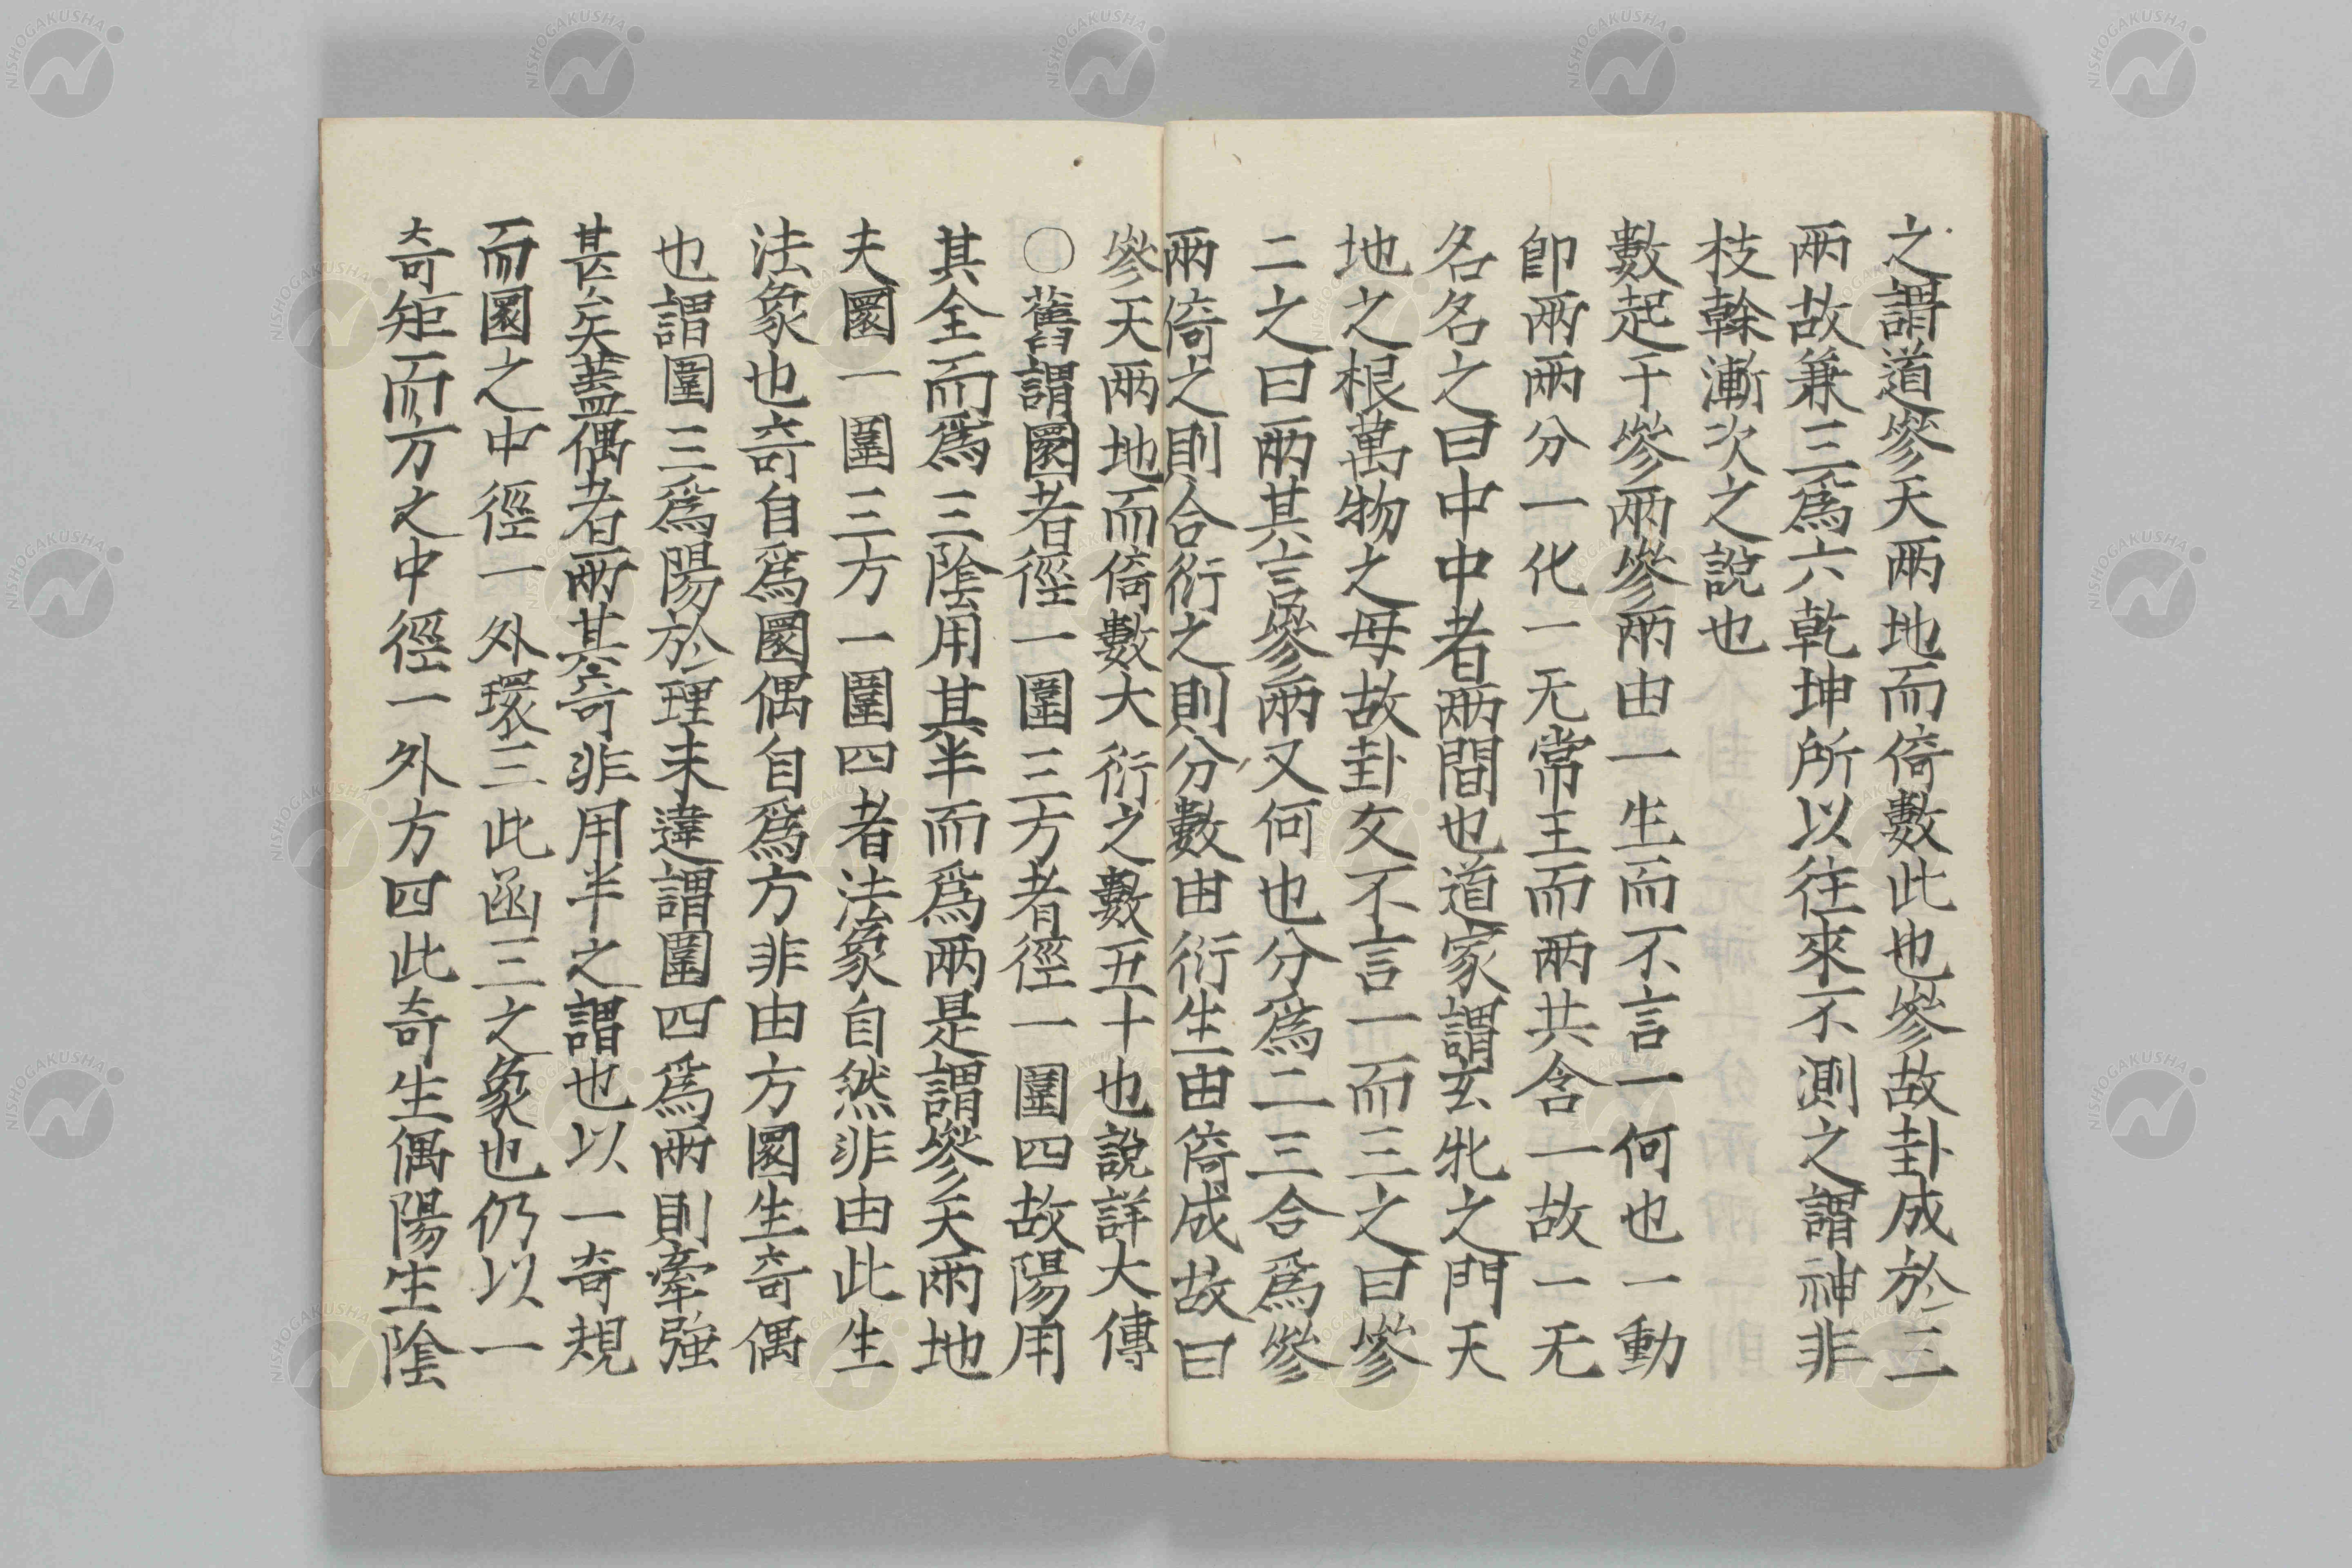 之謂道參天兩地而倚數此也參故卦成於三
兩故兼三爲六乾坤所以往來不測之謂神非
枝榦漸次之說也
數起于參兩參兩由一生而不言一何也一動
卽兩兩分一化一无常主而兩共含一故一无
名名之曰中中者兩間也道家謂玄牝之門天
地之根萬物之母故卦爻不言一而三之曰參
二之曰兩其言參兩又何也分爲二三合爲參
兩倚之則合衍之則分數由衍生由倚成故曰
參天兩地而倚數大衍之數五十也說詳大傳
〇舊謂圜者徑一圍三方者徑一圍四故陽用
其全而爲三陰用其半而爲兩是謂參天兩地
夫圜一圍三方一圍四者法象自然非由此生
法象也奇自爲圜偶自爲方非由方圜生奇偶
也謂圍三爲陽於理未違謂圍四爲兩則牽強
甚矣蓋偶者兩其奇非用半之謂也以一奇規
而圜之中徑一外環三此函三之象也仍以一
奇矩而方之中徑一外方四此奇生偶陽生陰
NISHOGAKUSHA